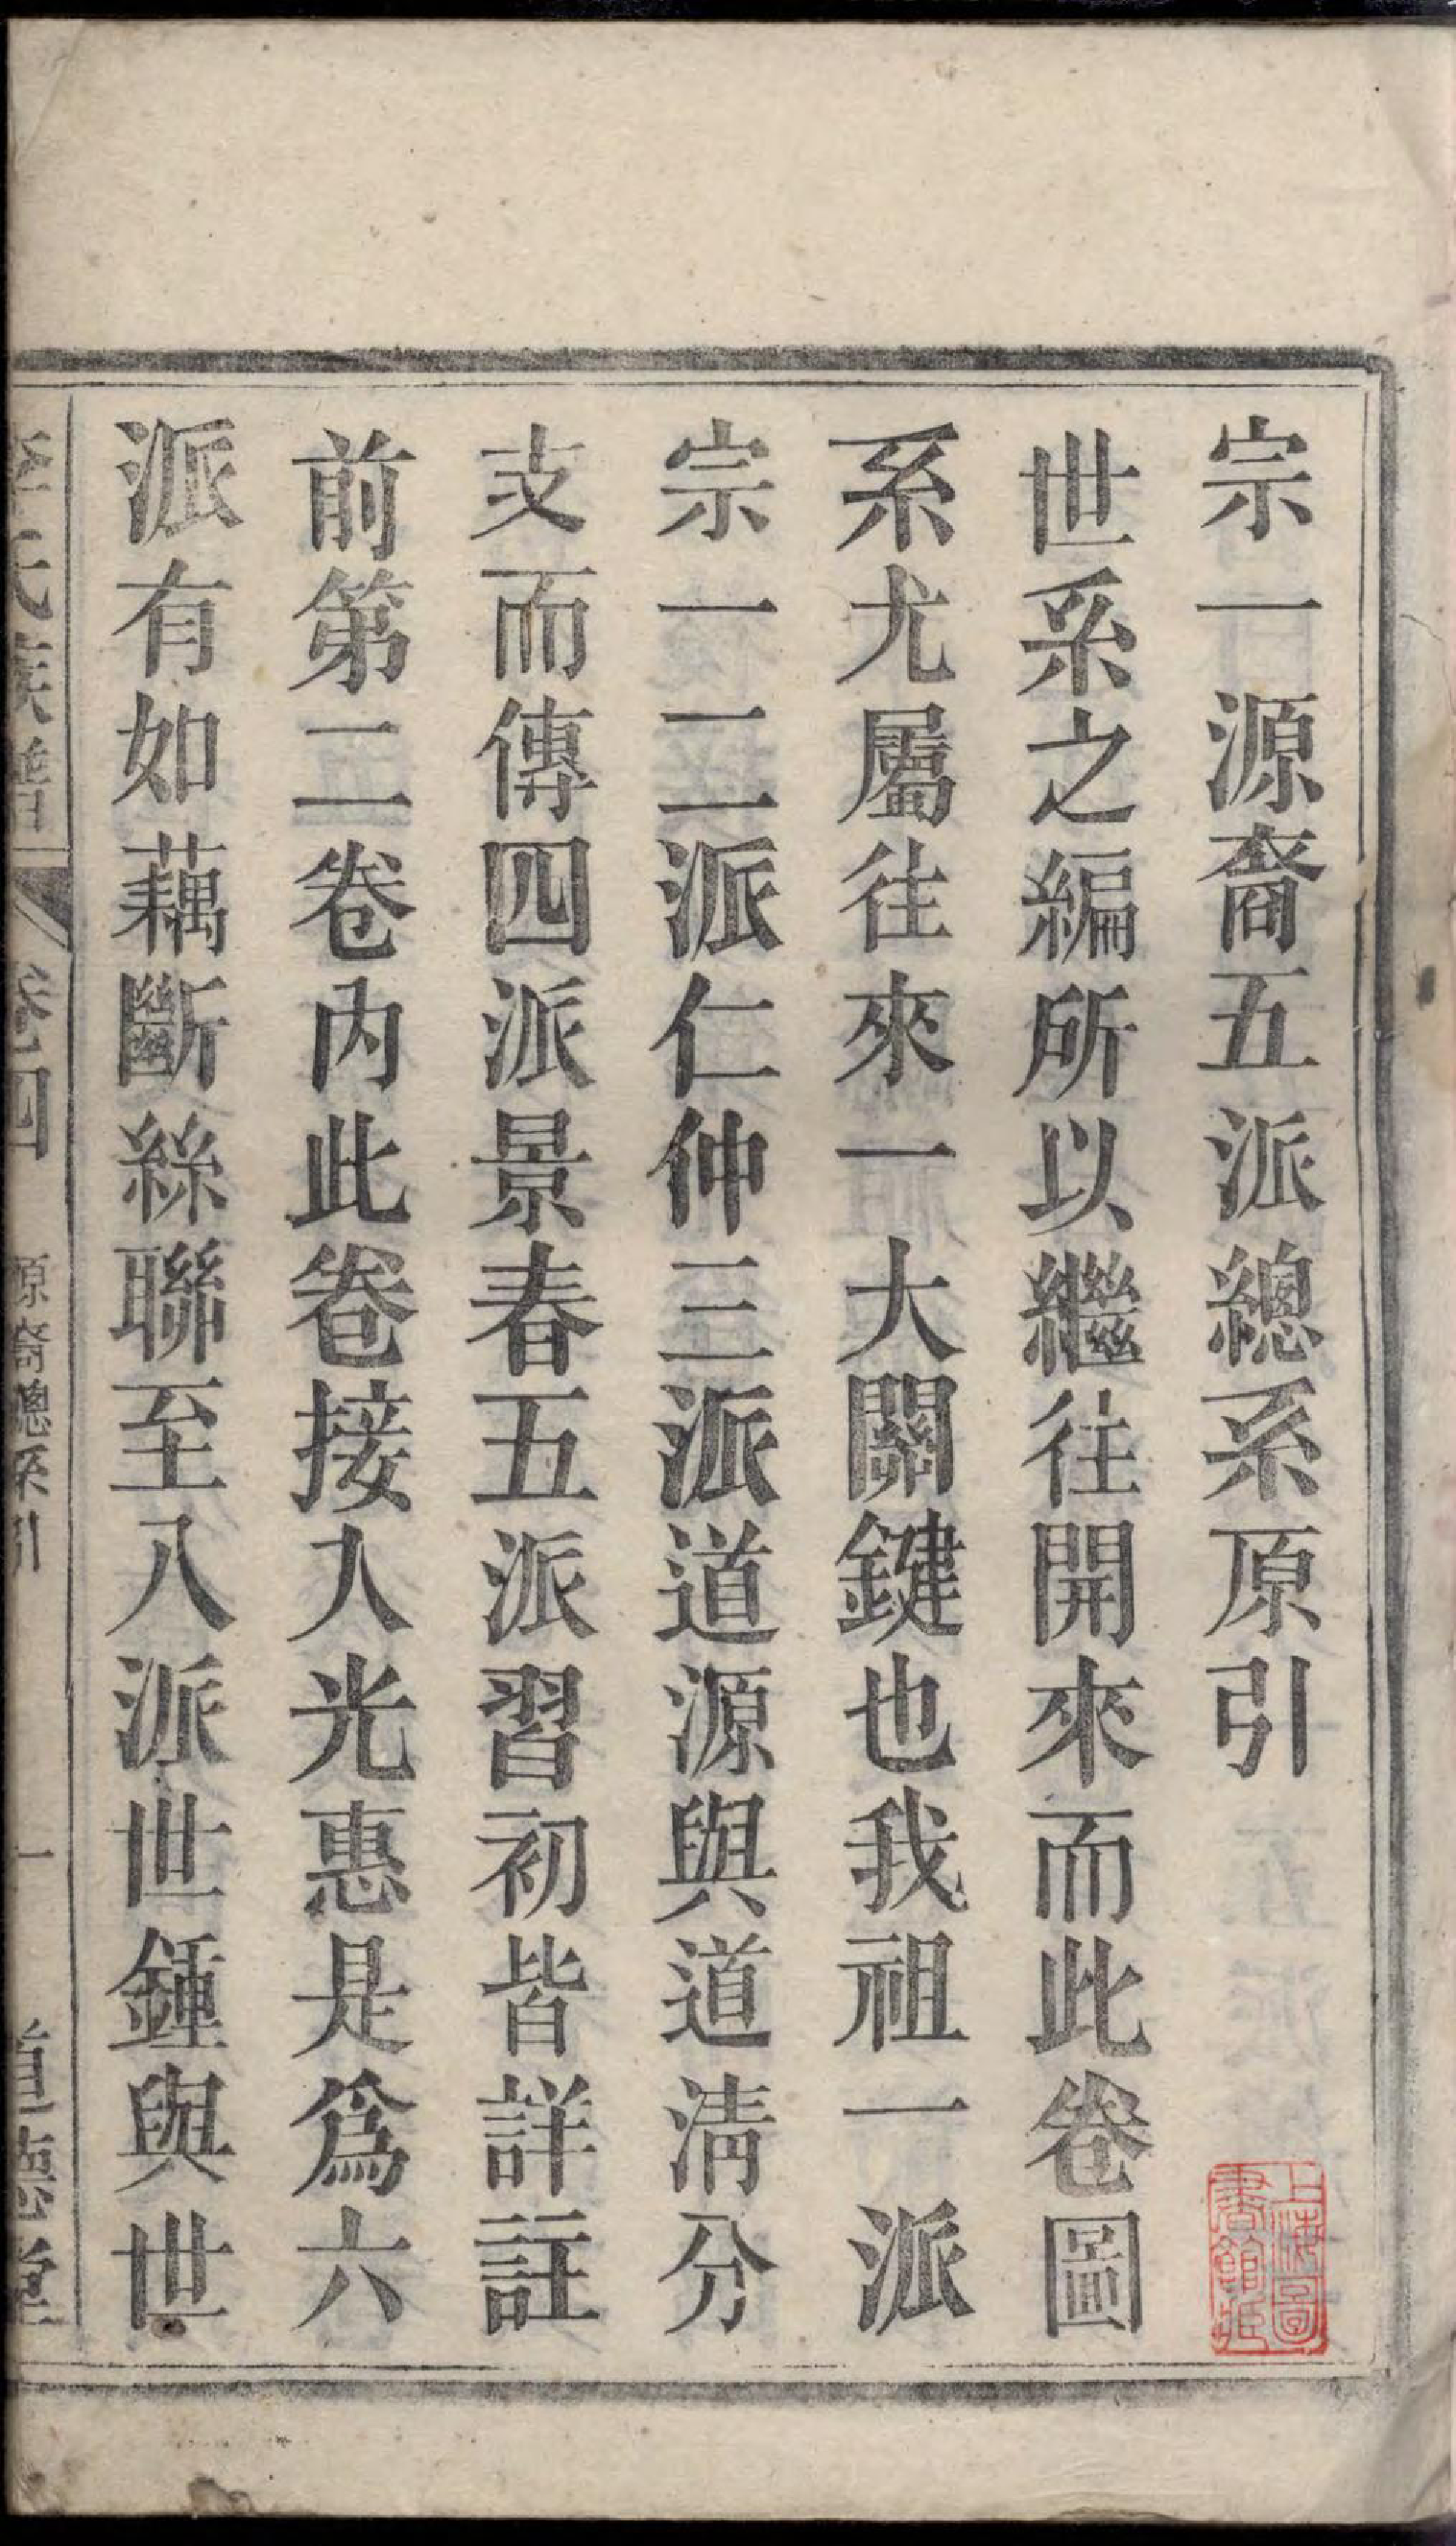 宗一源裔五派總系原引
世系之編所以繼往開來而此卷圖
系尤屬往來一大關鍵也我祖一派
宗一二派仁仲三派道源與道淸分
支而傳四派景春五派習初皆詳註
前第二卷內此卷接入光惠是爲六
派有如藕斷絲聯至八派世鍾與世
李氏族譜 卷四 源裔總系引 一 道德堂
上海圖
書館藏